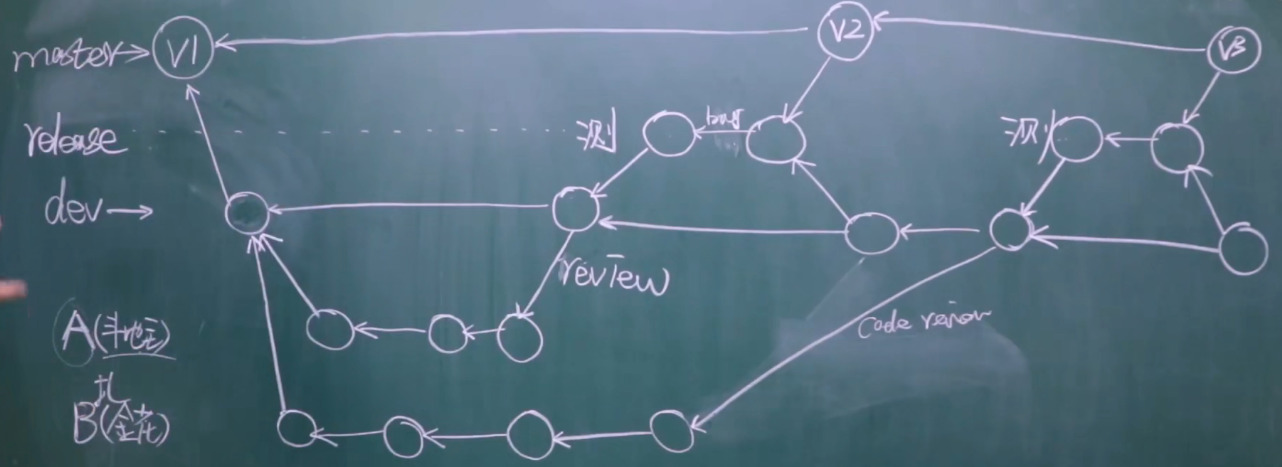 master V1 V2 V3
release 测 bug 测
dev
review
A(斗地主)
code review
扎
B(金花)